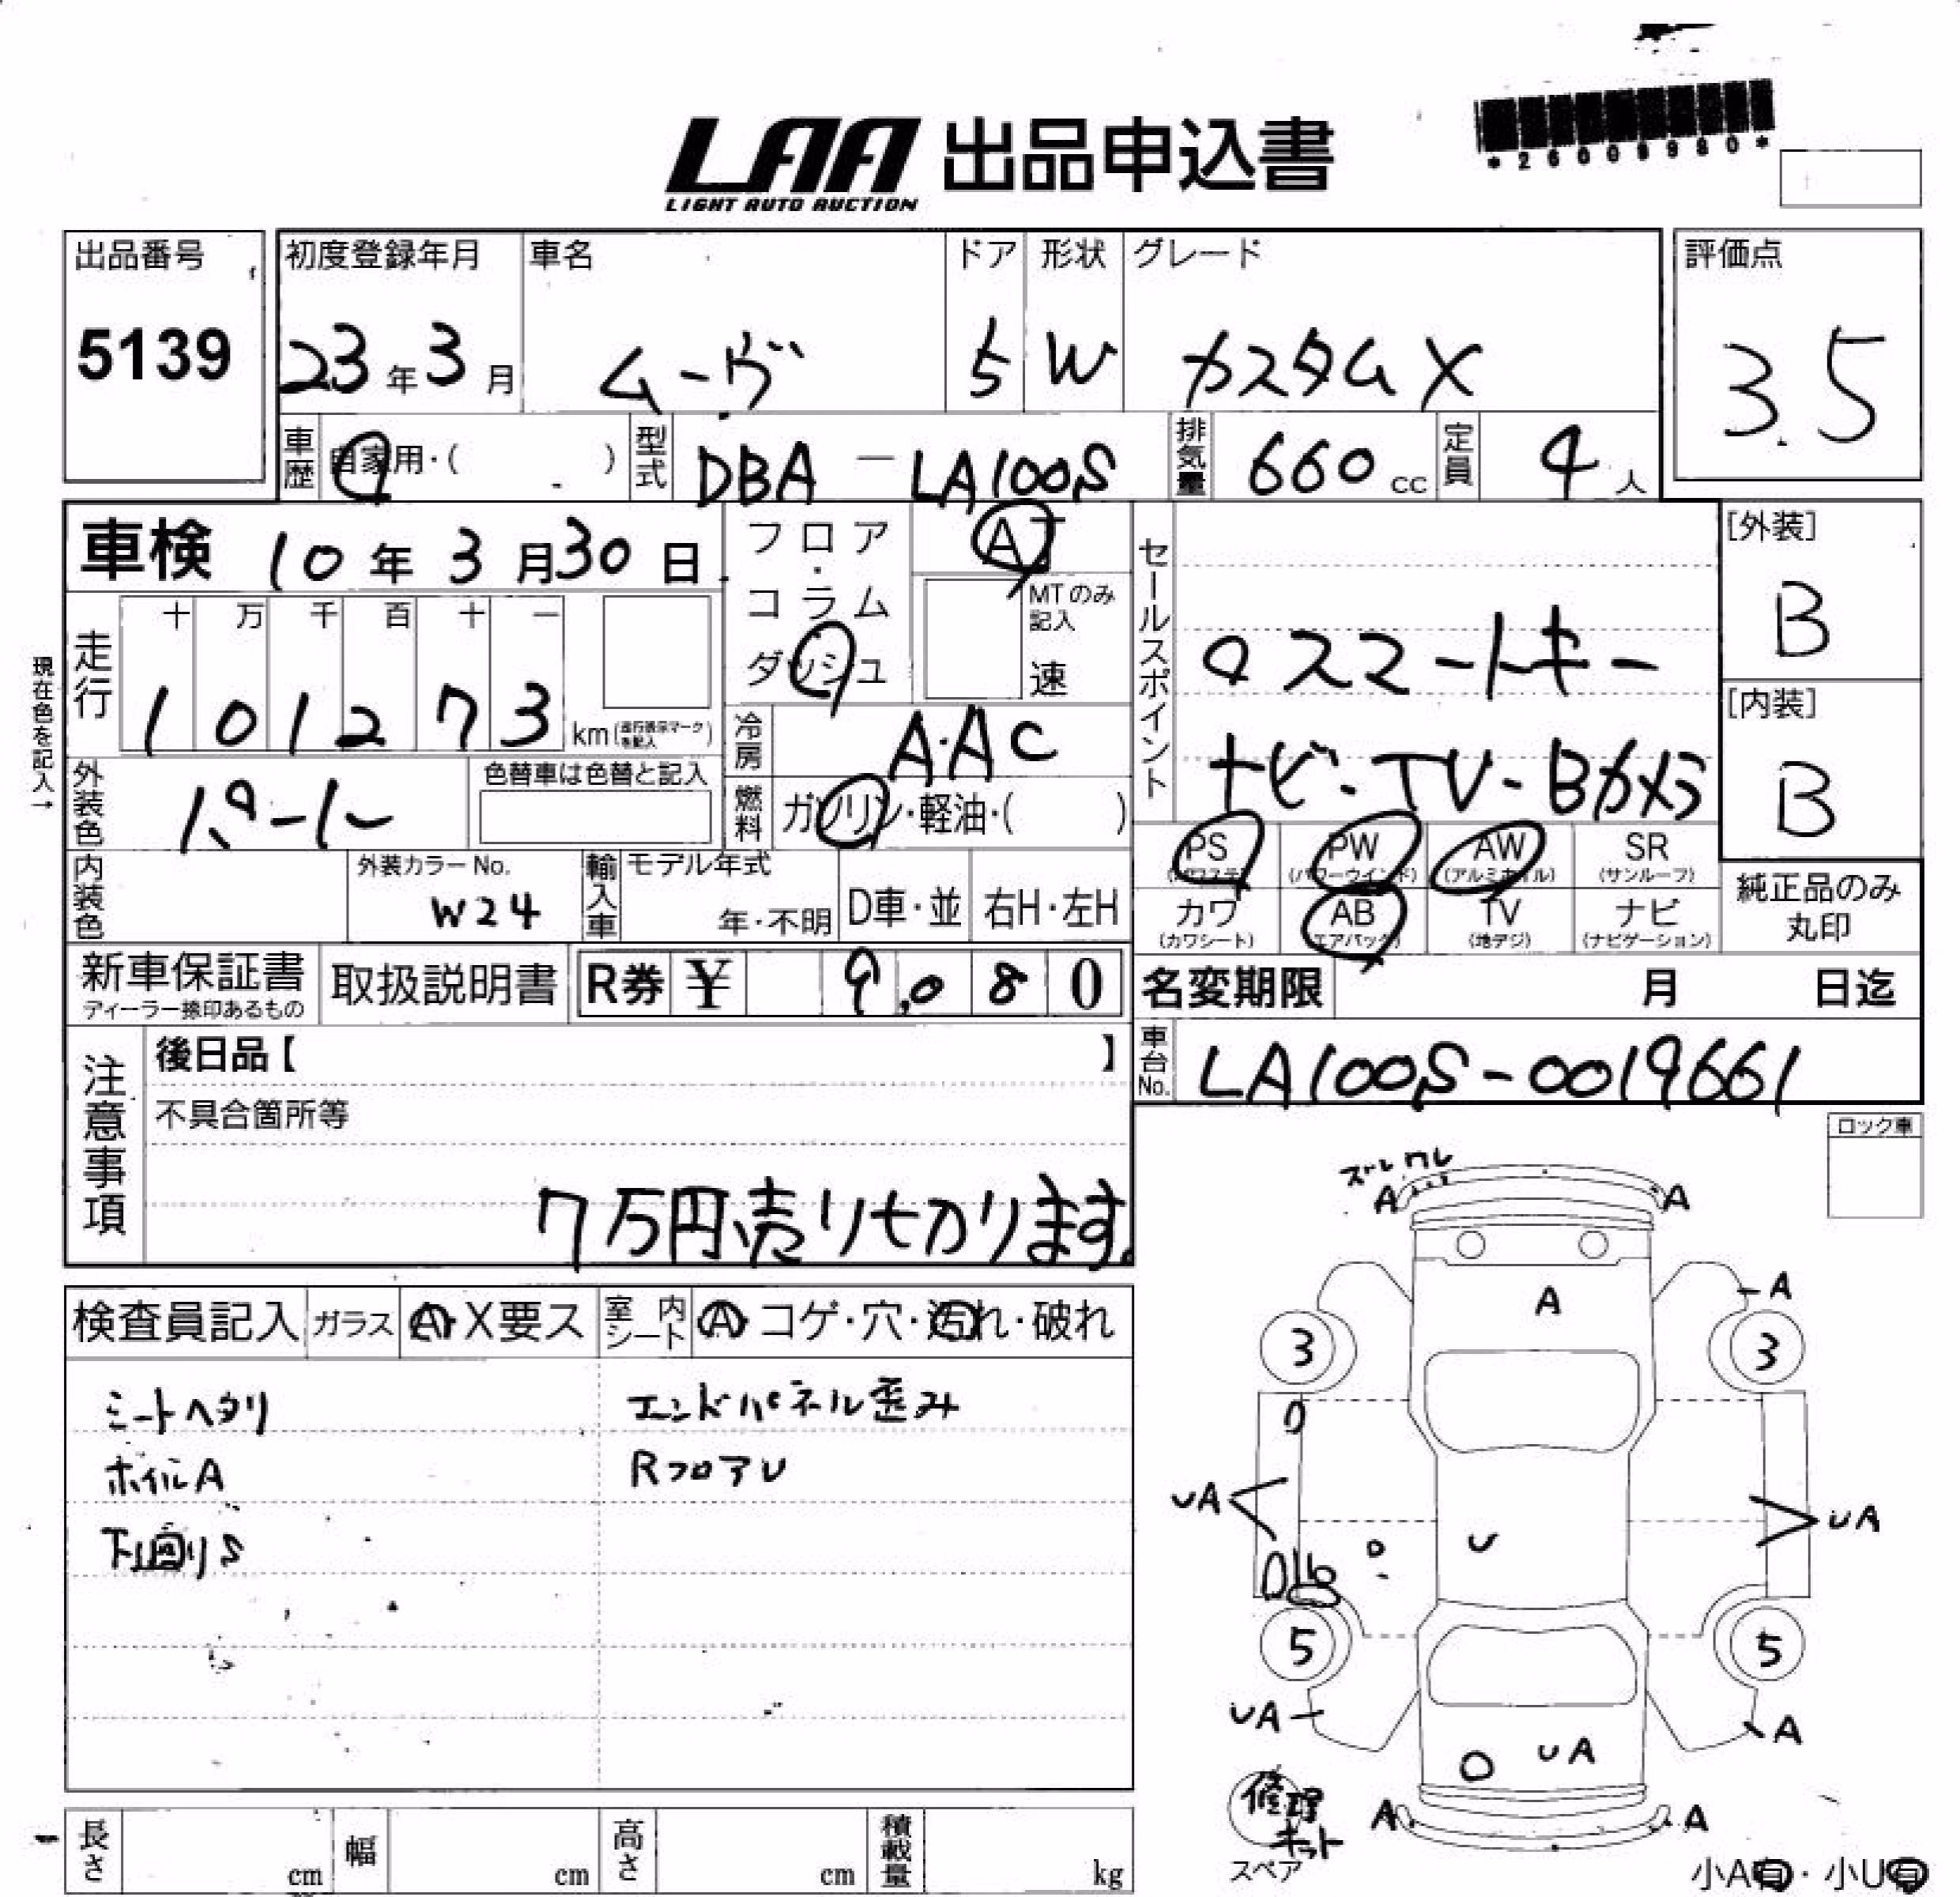 LAA 出品申込書
LIGHT AUTO AUCTION
*26009980*
出品番号
5139
初度登録年月
23年3月
車名
ムーヴ
ドア
5
形状
W
グレード
カスタムX
評価点
3.5
車歴
自家用・( )
型式
DBA-LA100S
排気量
660cc
定員
4人
車検 10年3月30日
フロア・コラム
ダッシュ
AT
MTのみ記入
速
セールスポイント
スマートキー
ナビ・TV・Bカメラ
[外装]
B
[内装]
B
現在色を記入→
走行
十 万 千 百 十 一
1 0 1 2 7 3 km(走行表示マークを記入)
冷房
A・AC
外装色
パール
色替車は色替と記入
燃料
ガソリン・軽油・( )
PS
(パワステ)
PW
(パワーウインド)
AW
(アルミホイル)
SR
(サンルーフ)
カワ
(カワシート)
AB
(エアバック)
TV
(地デジ)
ナビ
(ナビゲーション)
純正品のみ
丸印
内装色
外装カラーNo.
W24
輸入車
モデル年式
年・不明
D車・並
右H・左H
新車保証書
ディーラー捺印あるもの
取扱説明書
R券 ¥ 9,080
名変期限 月 日迄
車台No.
LA100S-0019661
注意事項
後日品【 】
不具合箇所等
7万円売り切ります。
ロック車
検査員記入
ガラス
A・X要ス
室内シート
A・コゲ・穴・汚れ・破れ
シートヘタリ
エンドパネル歪み
ホイルA
RフロアU
下回りS
ズレ ワレ
A A
A A
3 3
UA
U
UA
5 5
UA A
UA
修理キット
スペア
A A
小A有・小U有
長さ cm
幅 cm
高さ cm
積載量 kg